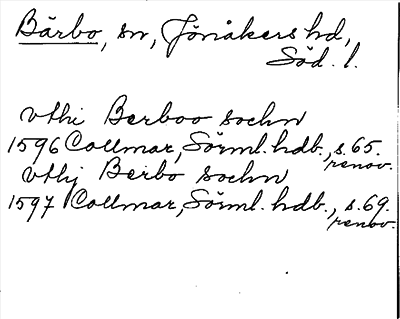 Bärbo, sn, Jönåkers hd,
Söd. l.
vthi Berboo sochn
1596 Collmar, Sörml. hdb., s. 65.
renov.
vthj Berbo sochn
1597 Collmar, Sörml. hdb., s. 69.
renov.